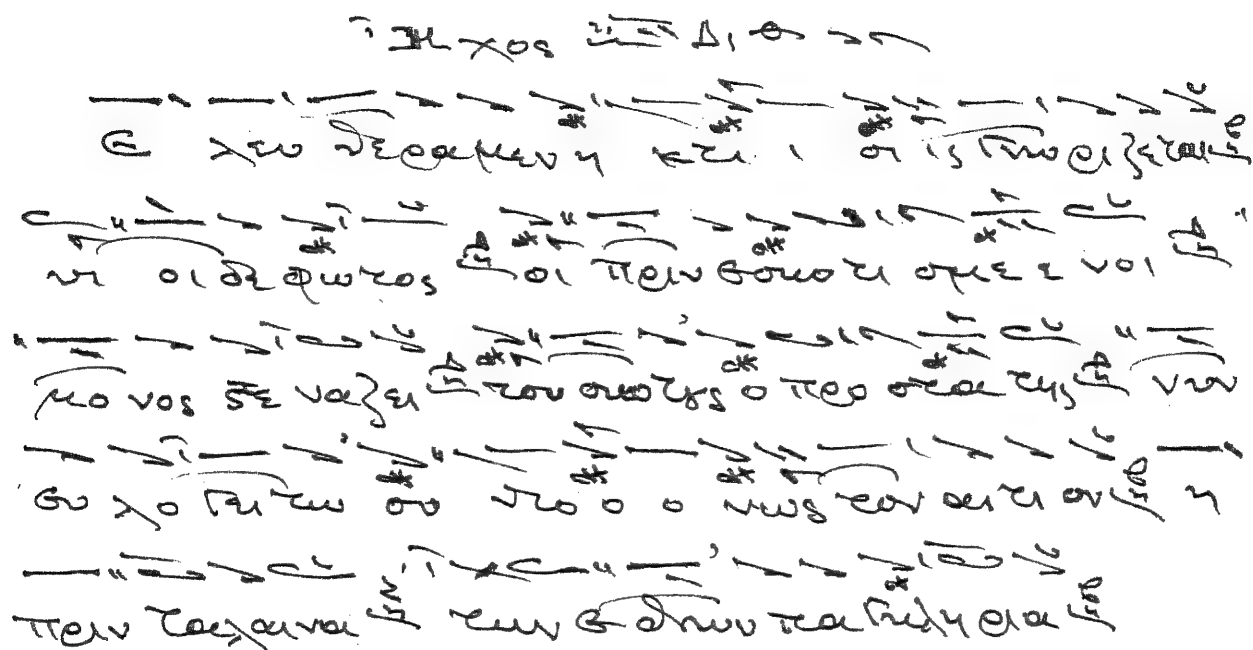 Ἦχος Δι
Ε λευ θε ρα μεν η κτι ι σι ις γνω ρι ζε ται
υι οι δε φω τος οι πριν εσκοτι σμε ε νοι
μο νος στε να ζει του σκοτους ο προ στα της νυν
ευ λο γει τω συ ντο ο ο νως τον αι τι ον η
πριν ταλαινα των ε θνων παγκληρια